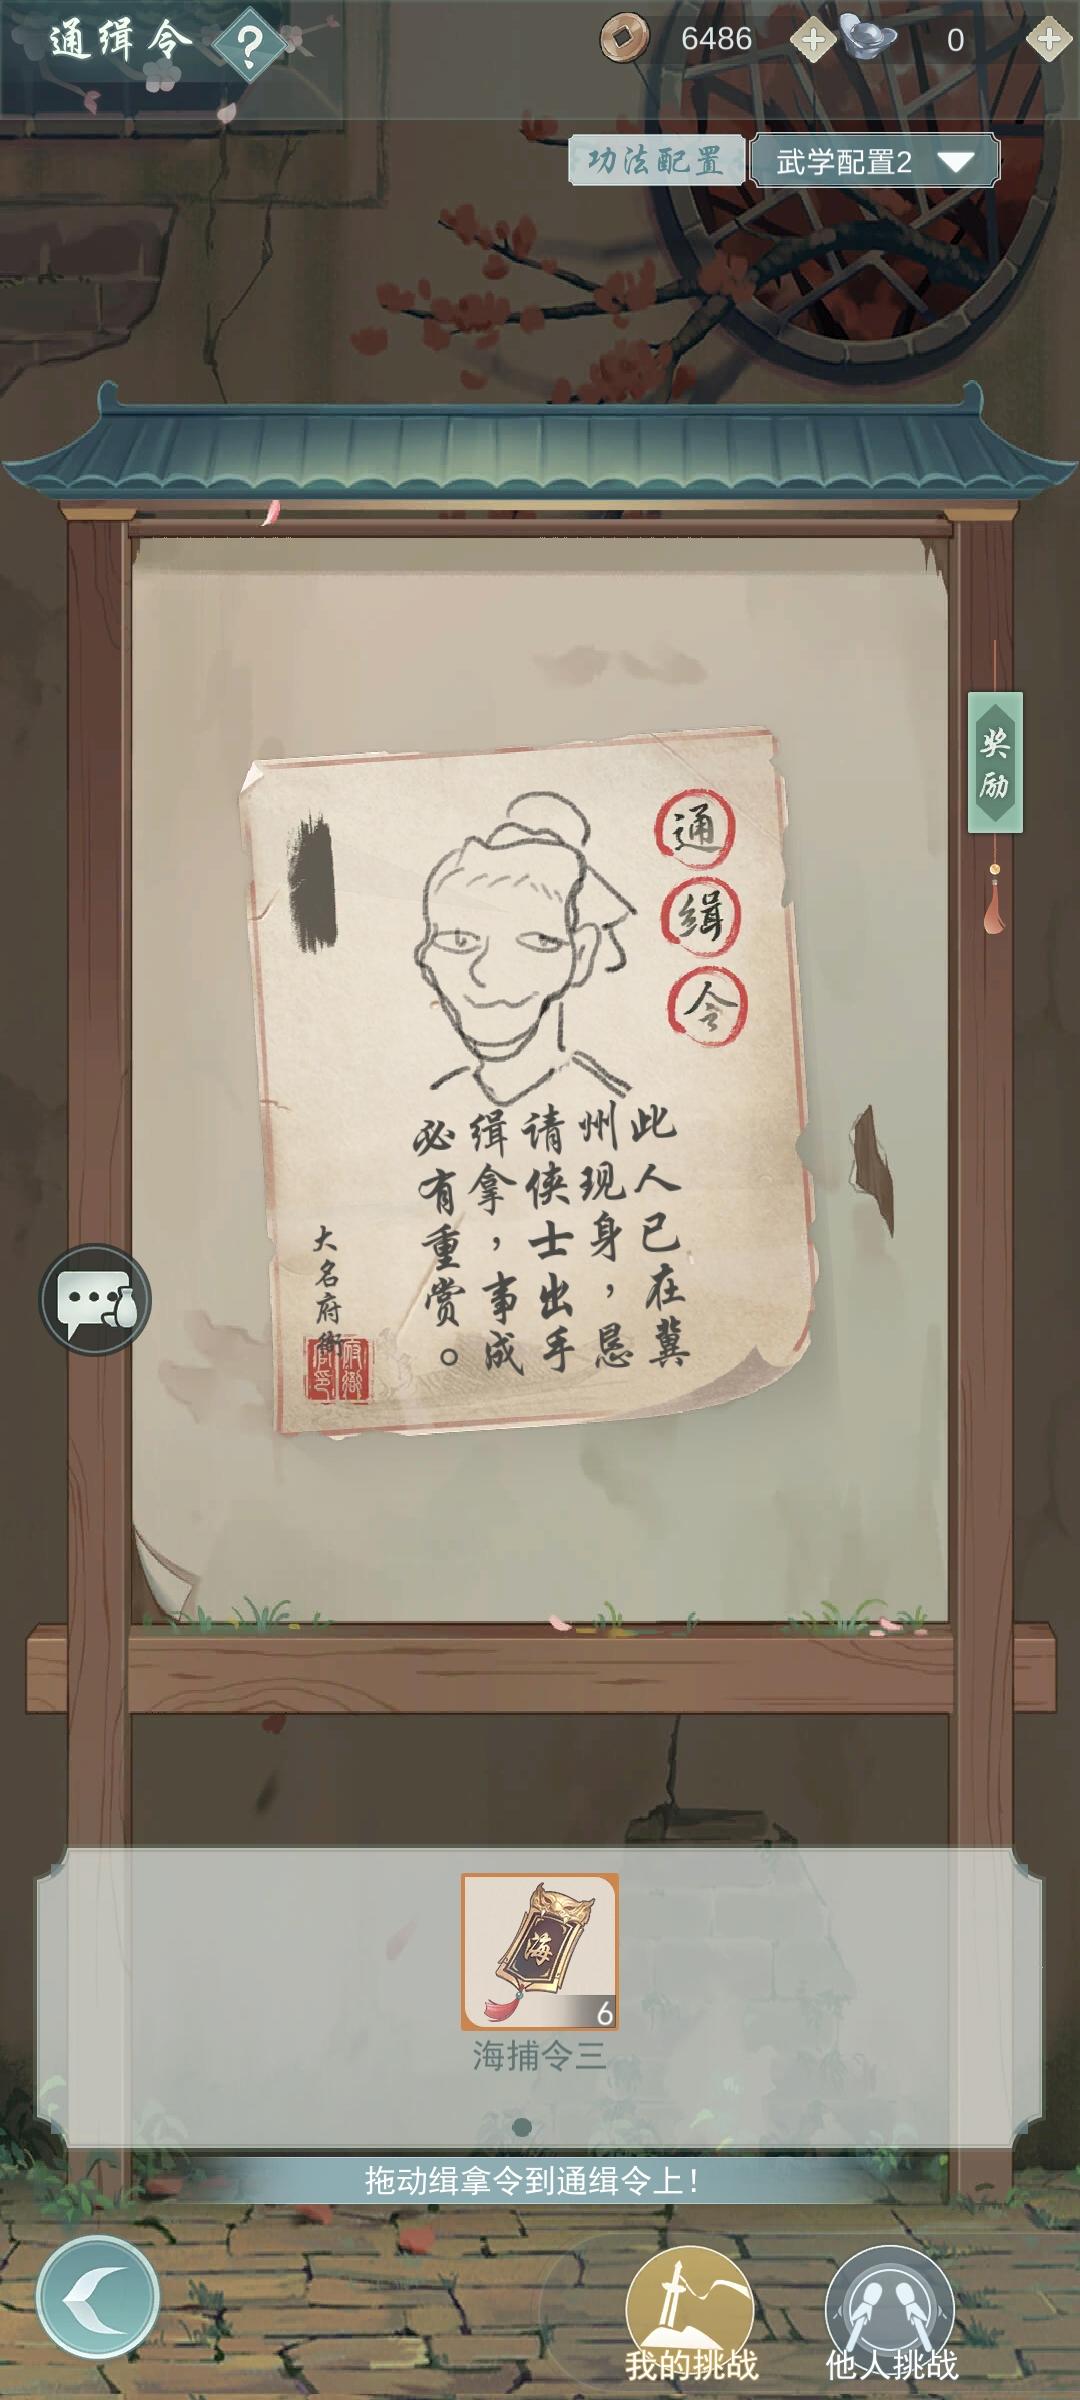 通缉令
?
6486
0
功法配置
武学配置2
奖励
通缉令
此人已在冀
州现身，恳
请侠士出手
缉拿，事成
必有重赏。
大名府衙
海
6
海捕令三
拖动缉拿令到通缉令上！
我的挑战
他人挑战